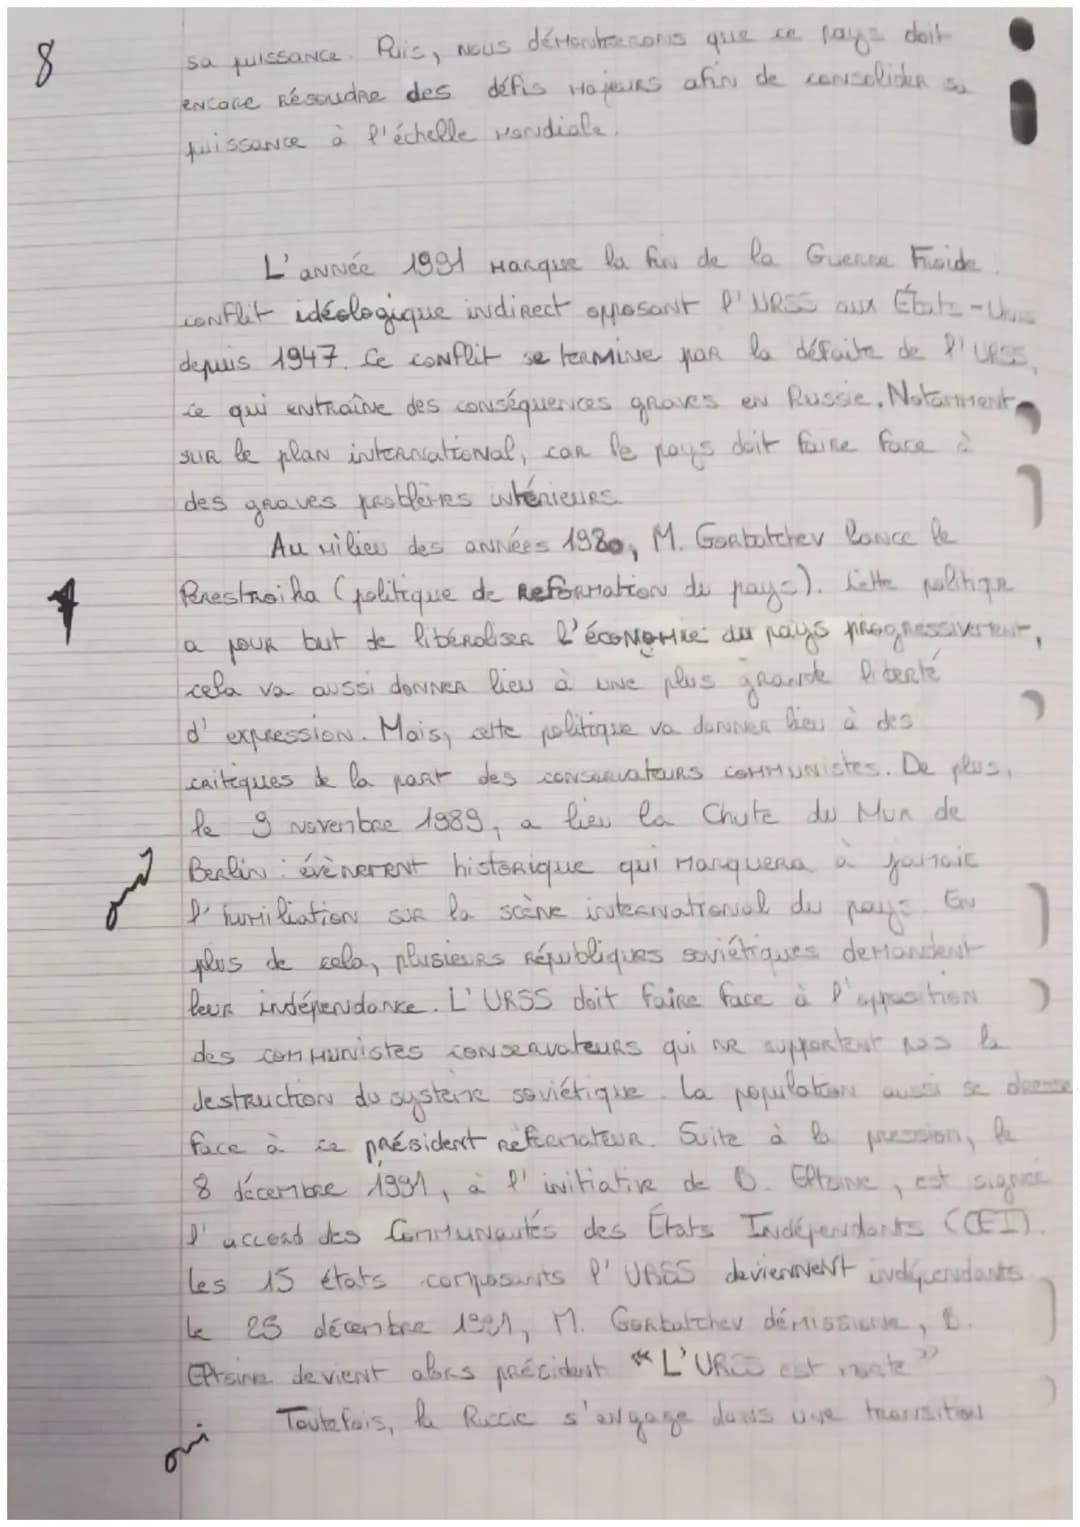 8
sa puissance. Puis, nous démontrerons que ce pays doit
encore résoudre des défis majeurs afin de consolider sa
puissance à l'échelle mondiale.
L'année 1991 marque la fin de la Guerre Froide.
conflit idéologique indirect opposant l'URSS aux États-Unis
depuis 1947. Ce conflit se termine par la défaite de l'URSS,
ce qui entraîne des conséquences graves en Russie. Notamment
sur le plan international, car le pays doit faire face à
des graves problèmes intérieurs.
Au milieu des années 1980, M. Gorbatchev lance le
Perestroika (politique de reformation du pays). Cette politique
a pour but de libéraliser l'économie du pays progressivement,
cela va aussi donner lieu à une plus grande liberté
d'expression. Mais, cette politique va donner lieu à des
critiques de la part des conservateurs communistes. De plus,
le 9 novembre 1989, a lieu la Chute du Mur de
Berlin : évènement historique qui marquera à jamais
oui
l'humiliation sur la scène international du pays. En
plus de cela, plusieurs républiques soviétiques demandent
leur indépendance. L'URSS doit faire face à l'opposition
des communistes conservateurs qui ne supportent pas la
destruction du système soviétique. La population aussi se dresse
face à ce président réformateur. Suite à la pression, le
8 décembre 1991, à l'initiative de B. Eltsine, est signée
l'accord des Communautés des États Indépendants (CEI).
Les 15 états composants l'URSS deviennent indépendants
le 25 décembre 1991, M. Gorbatchev démissionne, B.
Eltsine devient alors président "L'URSS est morte"
Toutefois, la Russie s'engage dans une transition
oui